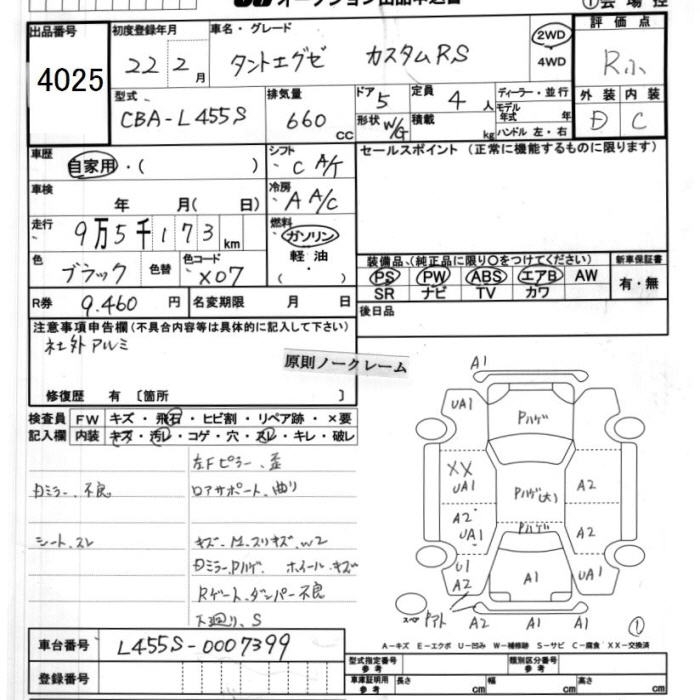 オークション出品申込書
①会場控
出品番号
4025
初度登録年月
22年 2月
車名・グレード
タントエグゼ カスタムRS
2WD
4WD
評価点
R
外装 内装
D C
型式
CBA-L455S
排気量
660 cc
ドア 5
形状 W/G
定員 4 人
積載 kg
ディーラー・並行
モデル年式 年
ハンドル 左・右
車歴
自家用・( )
シフト
C A/T
セールスポイント (正常に機能するものに限ります)
車検
年 月( 日)
冷房
A A/C
走行
9万5千173km
燃料
ガソリン
軽油
( ・ )
色
ブラック 色替
色コード
X07
装備品(純正品に限り○をつけてください) 新車保証書
PS PW ABS エアB AW 有・無
SR ナビ TV カワ
R券 9.460 円 名変期限 月 日
後日品
注意事項申告欄(不具合内容等は具体的に記入して下さい)
社外アルミ
原則ノークレーム
修復歴 有〔箇所 〕
検査員 FW キズ・飛石・ヒビ割・リペア跡・×要
記入欄 内装 キズ・汚レ・コゲ・穴・スレ・キレ・破レ
左Fピラー、歪
Dミラー、不良 ロアサポート、曲り
シート、スレ キズ、M、スリキズ、W2
Dミラー、Pハゲ ホイール、キズ
Rゲート、ダンパー不良
下廻り、S
A1
UA1 Pハゲ
XX UA1 Pハゲ(大) A2
A2 UA1 Pハゲ A2
U1 A2 A1 UA1
スペア アト A2 A1 A1
①
A-キズ E-エクボ U-凹み W-補修跡 S-サビ C-腐食 XX-交換済
車台番号 L455S-0007399
登録番号
型式指定番号 参考 類別区分番号 参考
車庫証明用 参考 長さ cm 幅 cm 高さ cm